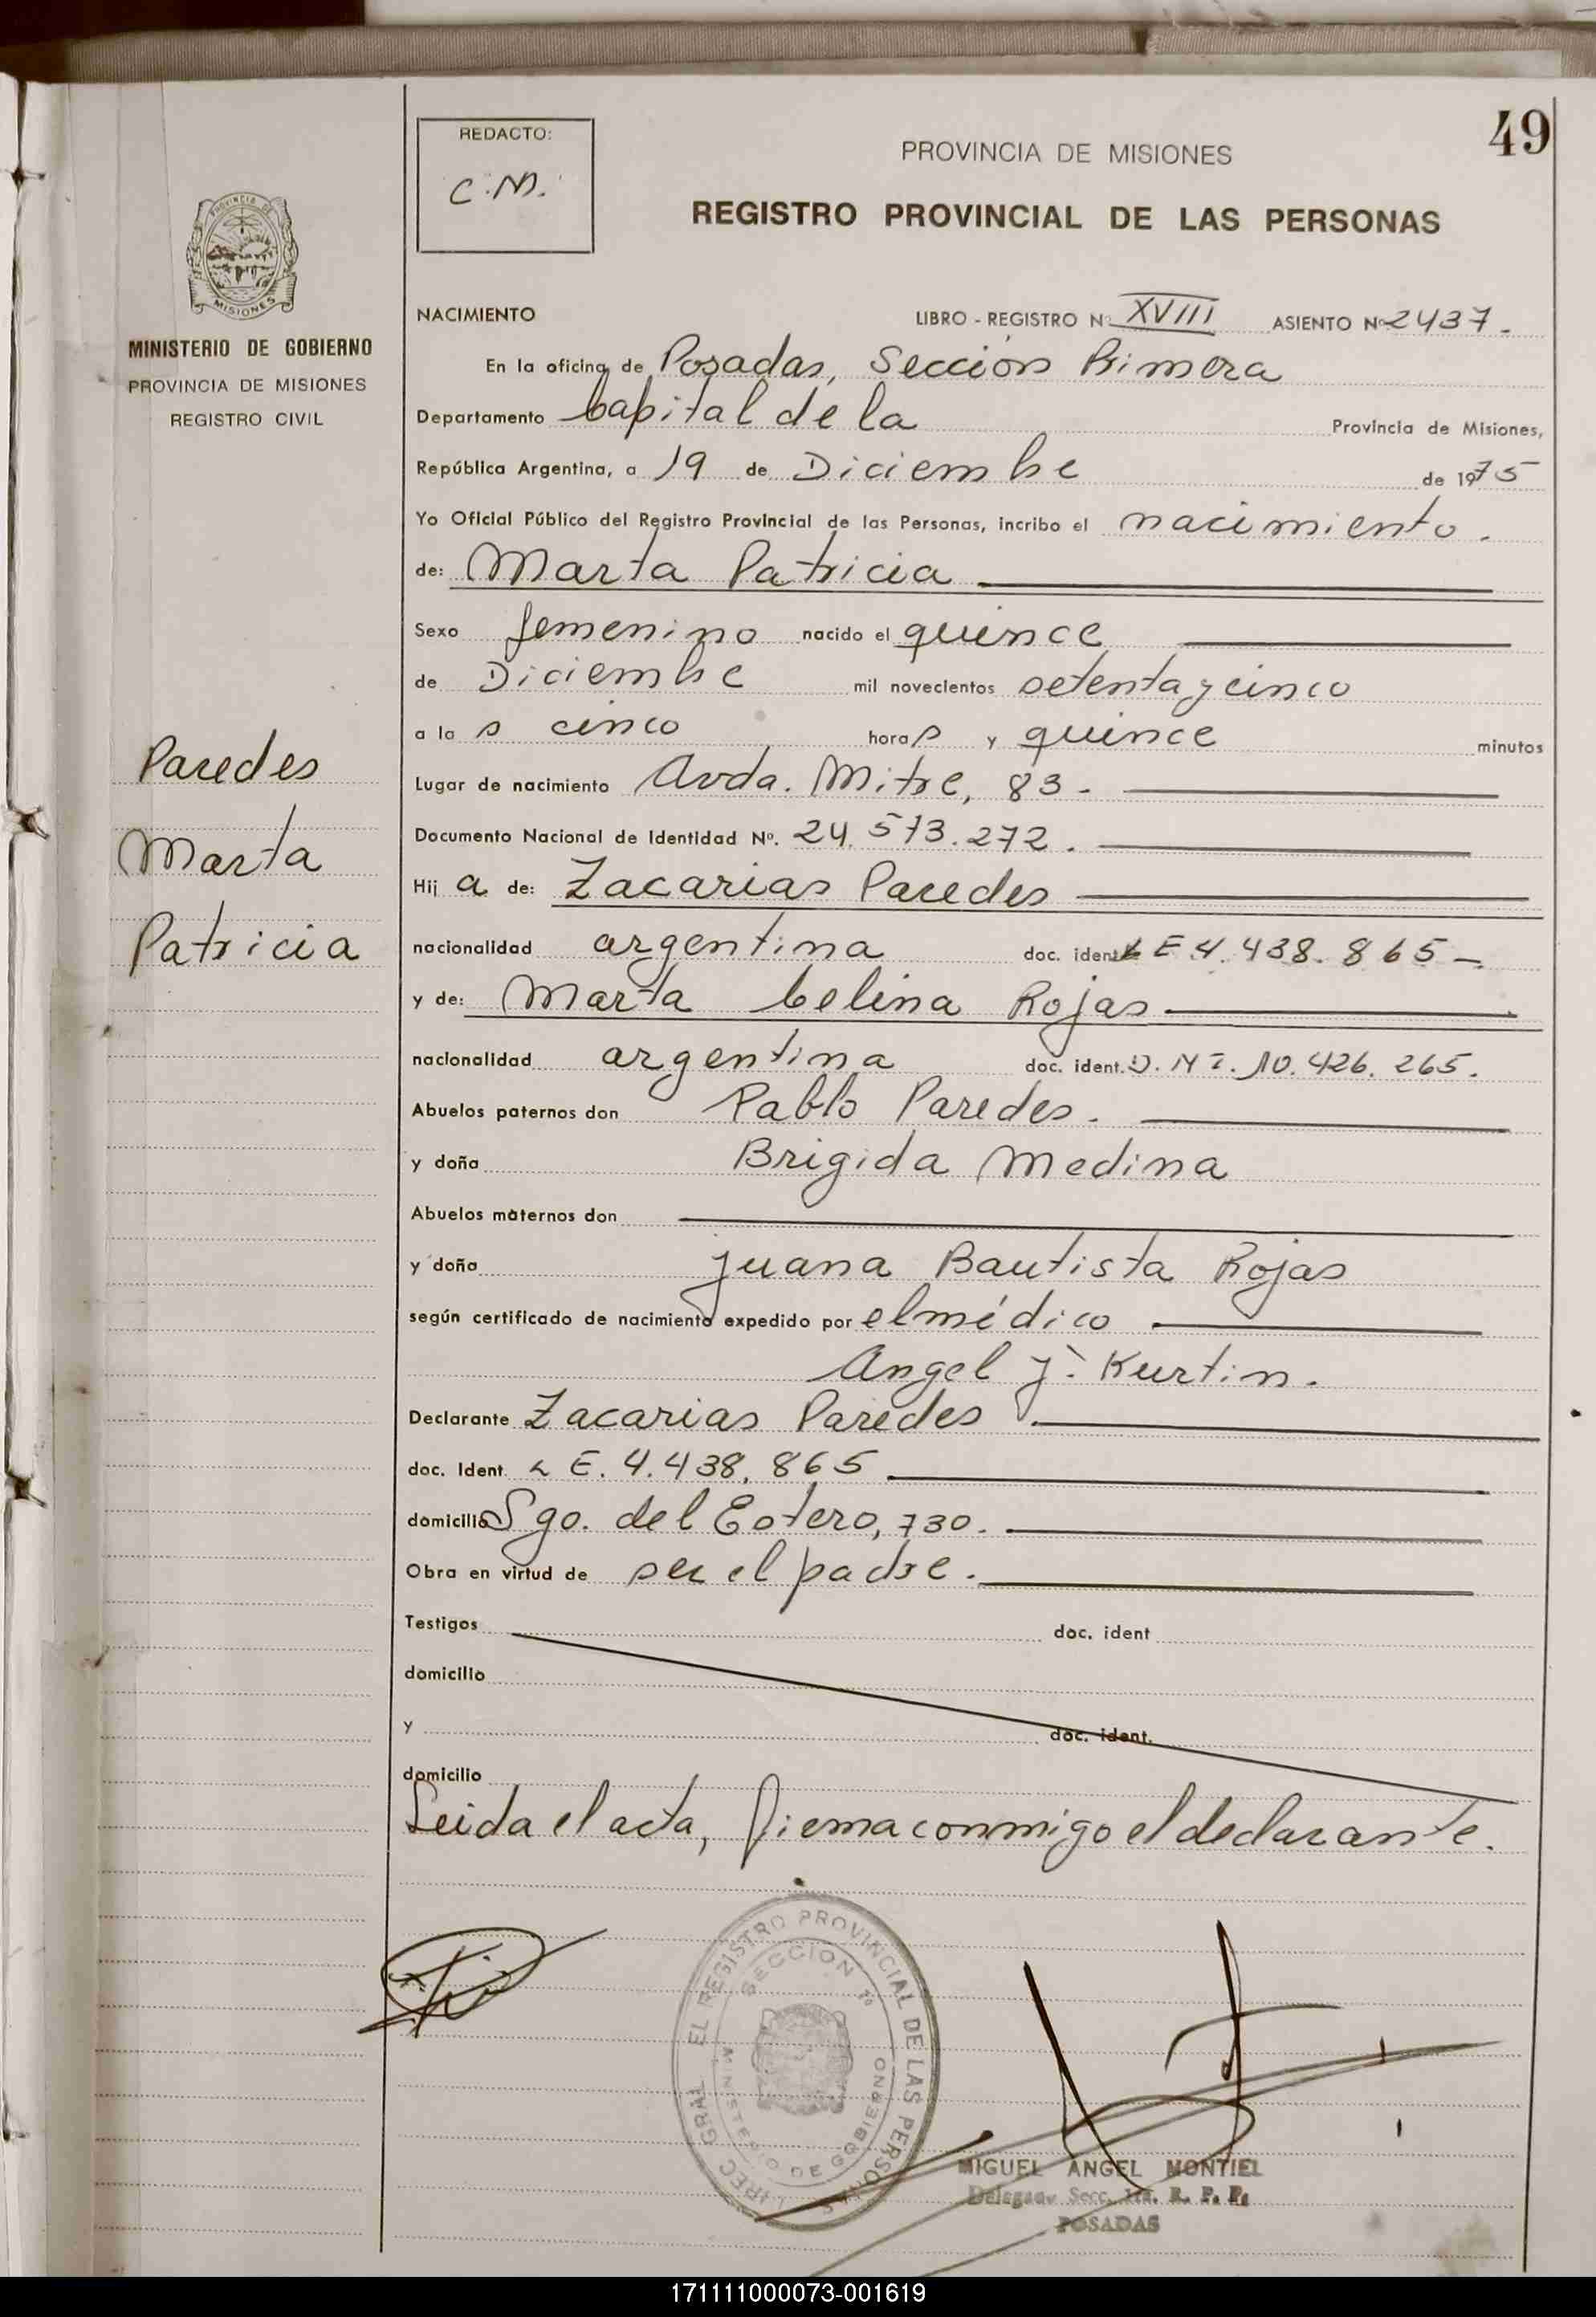 49
REDACTO:
C.M.
PROVINCIA DE MISIONES
REGISTRO PROVINCIAL DE LAS PERSONAS
PROVINCIA DE
MISIONES
MINISTERIO DE GOBIERNO
PROVINCIA DE MISIONES
REGISTRO CIVIL
NACIMIENTO LIBRO - REGISTRO Nº XVIII ASIENTO Nº 2437.
En la oficina de Posadas, Sección Primera
Departamento Capital de la Provincia de Misiones,
República Argentina, a 19 de Diciembre de 1975
Yo Oficial Público del Registro Provincial de las Personas, incribo el nacimiento.
de: Marta Patricia
Sexo femenino nacido el quince
de Diciembre mil novecientos setenta y cinco
a la s cinco horas y quince minutos
Lugar de nacimiento Avda. Mitre, 83.
Documento Nacional de Identidad Nº. 24.573.272.
Hij a de: Zacarias Paredes
nacionalidad argentina doc. ident. L E 4.438.865
y de: Marta Celina Rojas
nacionalidad argentina doc. ident. D.N I. 10.426.265.
Abuelos paternos don Pablo Paredes.
y doña Brigida Medina
Abuelos maternos don
y doña Juana Bautista Rojas
según certificado de nacimiento expedido por el médico
Angel J. Kurtin.
Declarante Zacarias Paredes
doc. Ident. L E. 4.438.865
domicilio Sgo. del Estero, 730.
Obra en virtud de ser el padre.
Testigos doc. ident
domicilio
y doc. ident.
domicilio
Leida el acta, firma conmigo el declarante.
Paredes
Marta
Patricia
DIREC GRAL EL REGISTRO PROVINCIAL DE LAS PERSONAS
SECCION 1ª
MINISTERIO DE GOBIERNO
MIGUEL ANGEL MONTIEL
Secc. 1ra. R. P. P.
POSADAS
171111000073-001619